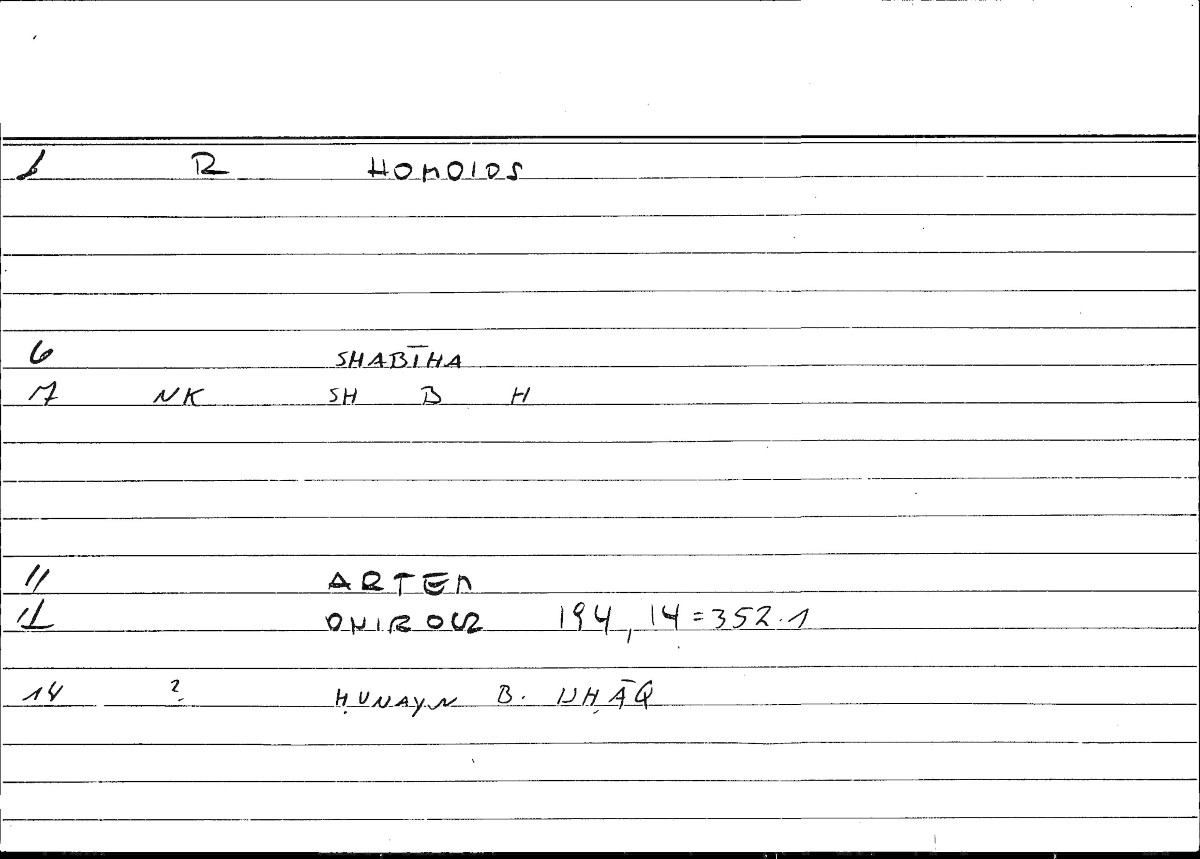 1 R HOMOIOS
6 SHABĪHA
7 NK SH B H
11 ARTEM
12 ONIROCR 194, 14 = 352.1
14 ? ḤUNAYN B. ISḤĀQ